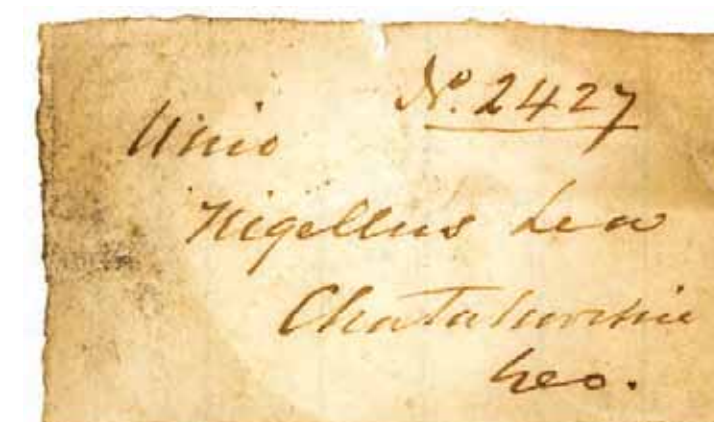 No. 2427
Unio
Nigellus Lea
Chatahurchie
Geo.